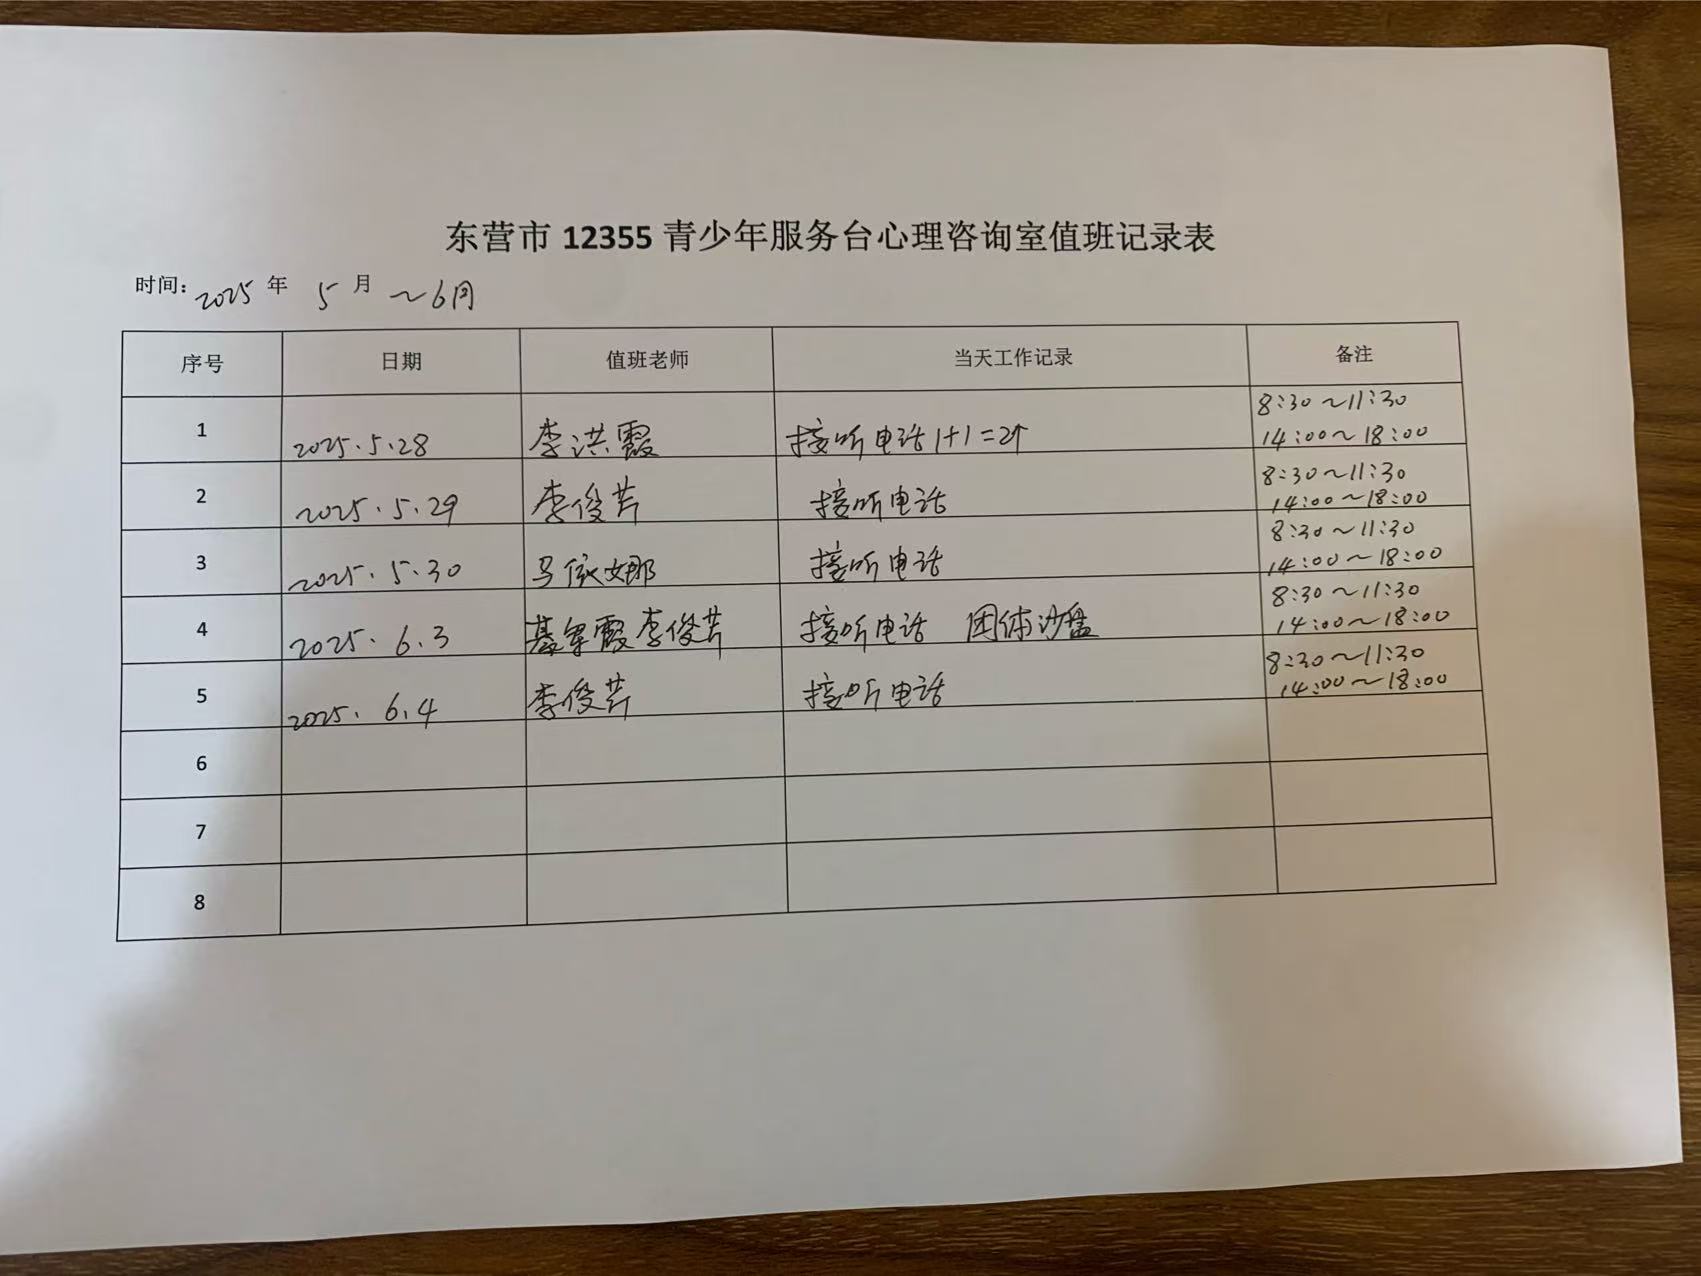 东营市 12355 青少年服务台心理咨询室值班记录表
时间: 2025 年 5 月 ~6月
序号 日期 值班老师 当天工作记录 备注
1 2025.5.28 李洪霞 接听电话 1+1=2个 8:30~11:30
14:00~18:00
2 2025.5.29 李俊芹 接听电话 8:30~11:30
14:00~18:00
3 2025.5.30 马依娜 接听电话 8:30~11:30
14:00~18:00
4 2025.6.3 李俊芹 接听电话 团体沙盘 8:30~11:30
14:00~18:00
5 2025.6.4 李俊芹 接听电话 8:30~11:30
14:00~18:00
6
7
8